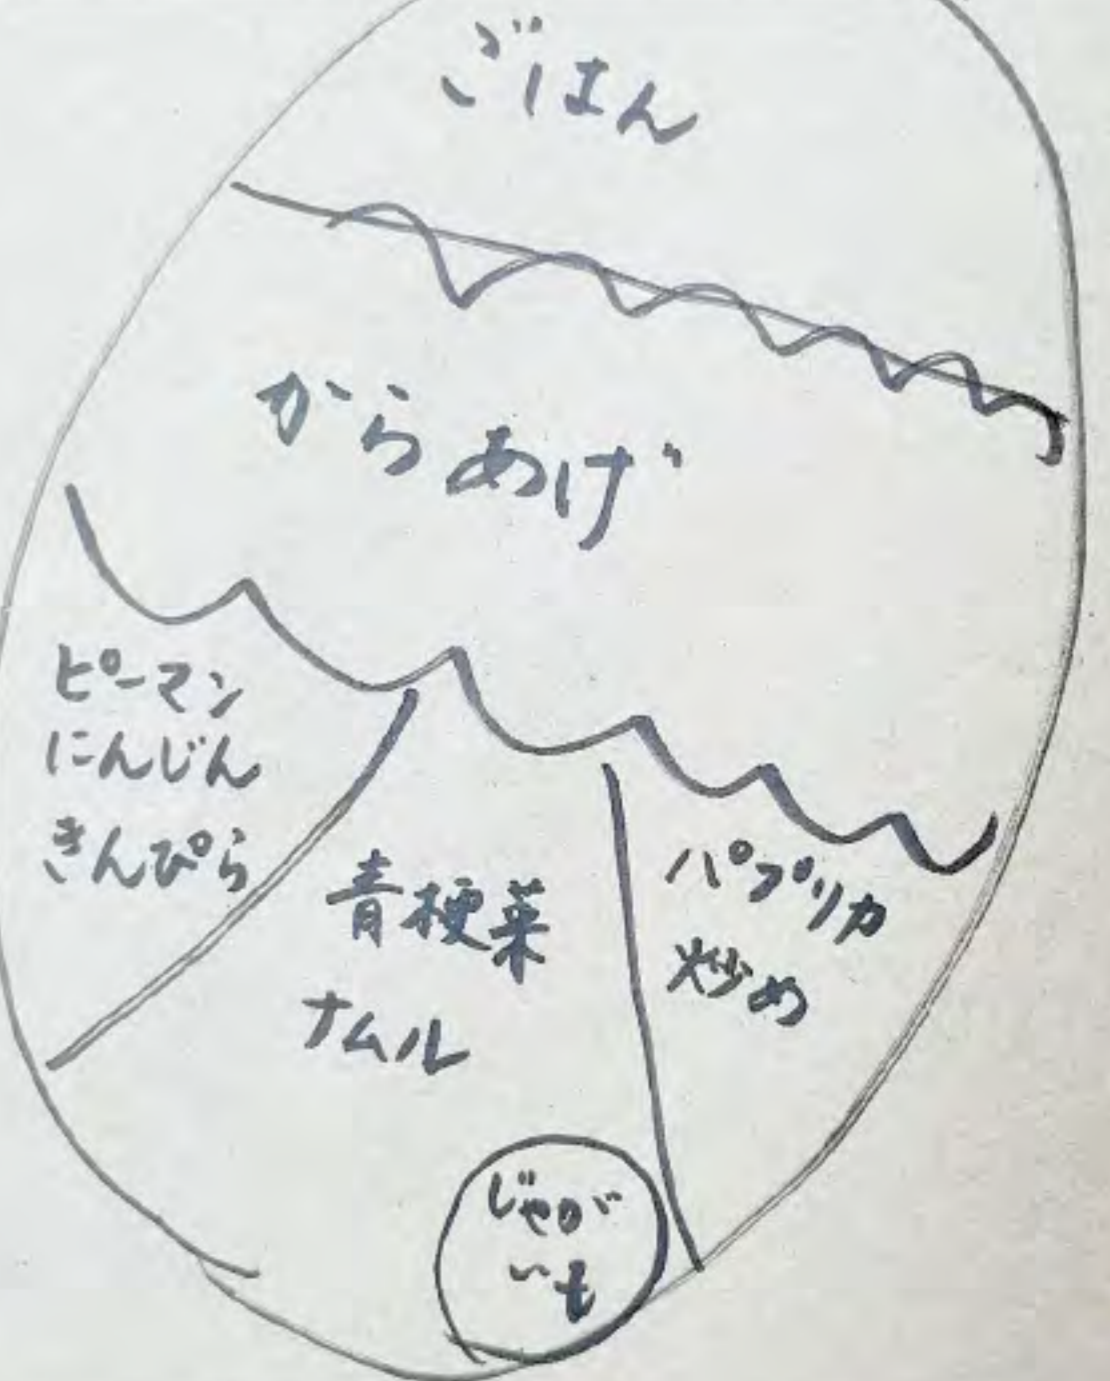 ごはん
からあげ
ピーマン
にんじん
きんぴら
青梗菜
ナムル
パプリカ
炒め
じゃが
いも